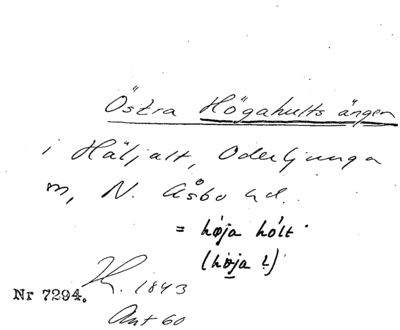 Östra Högahults ängen
i Häljalt, Oderljunga
m, N. Åsbo hd.
= høja hólt
(høja !)
H. 1843
Nr 7294.
Ant 60